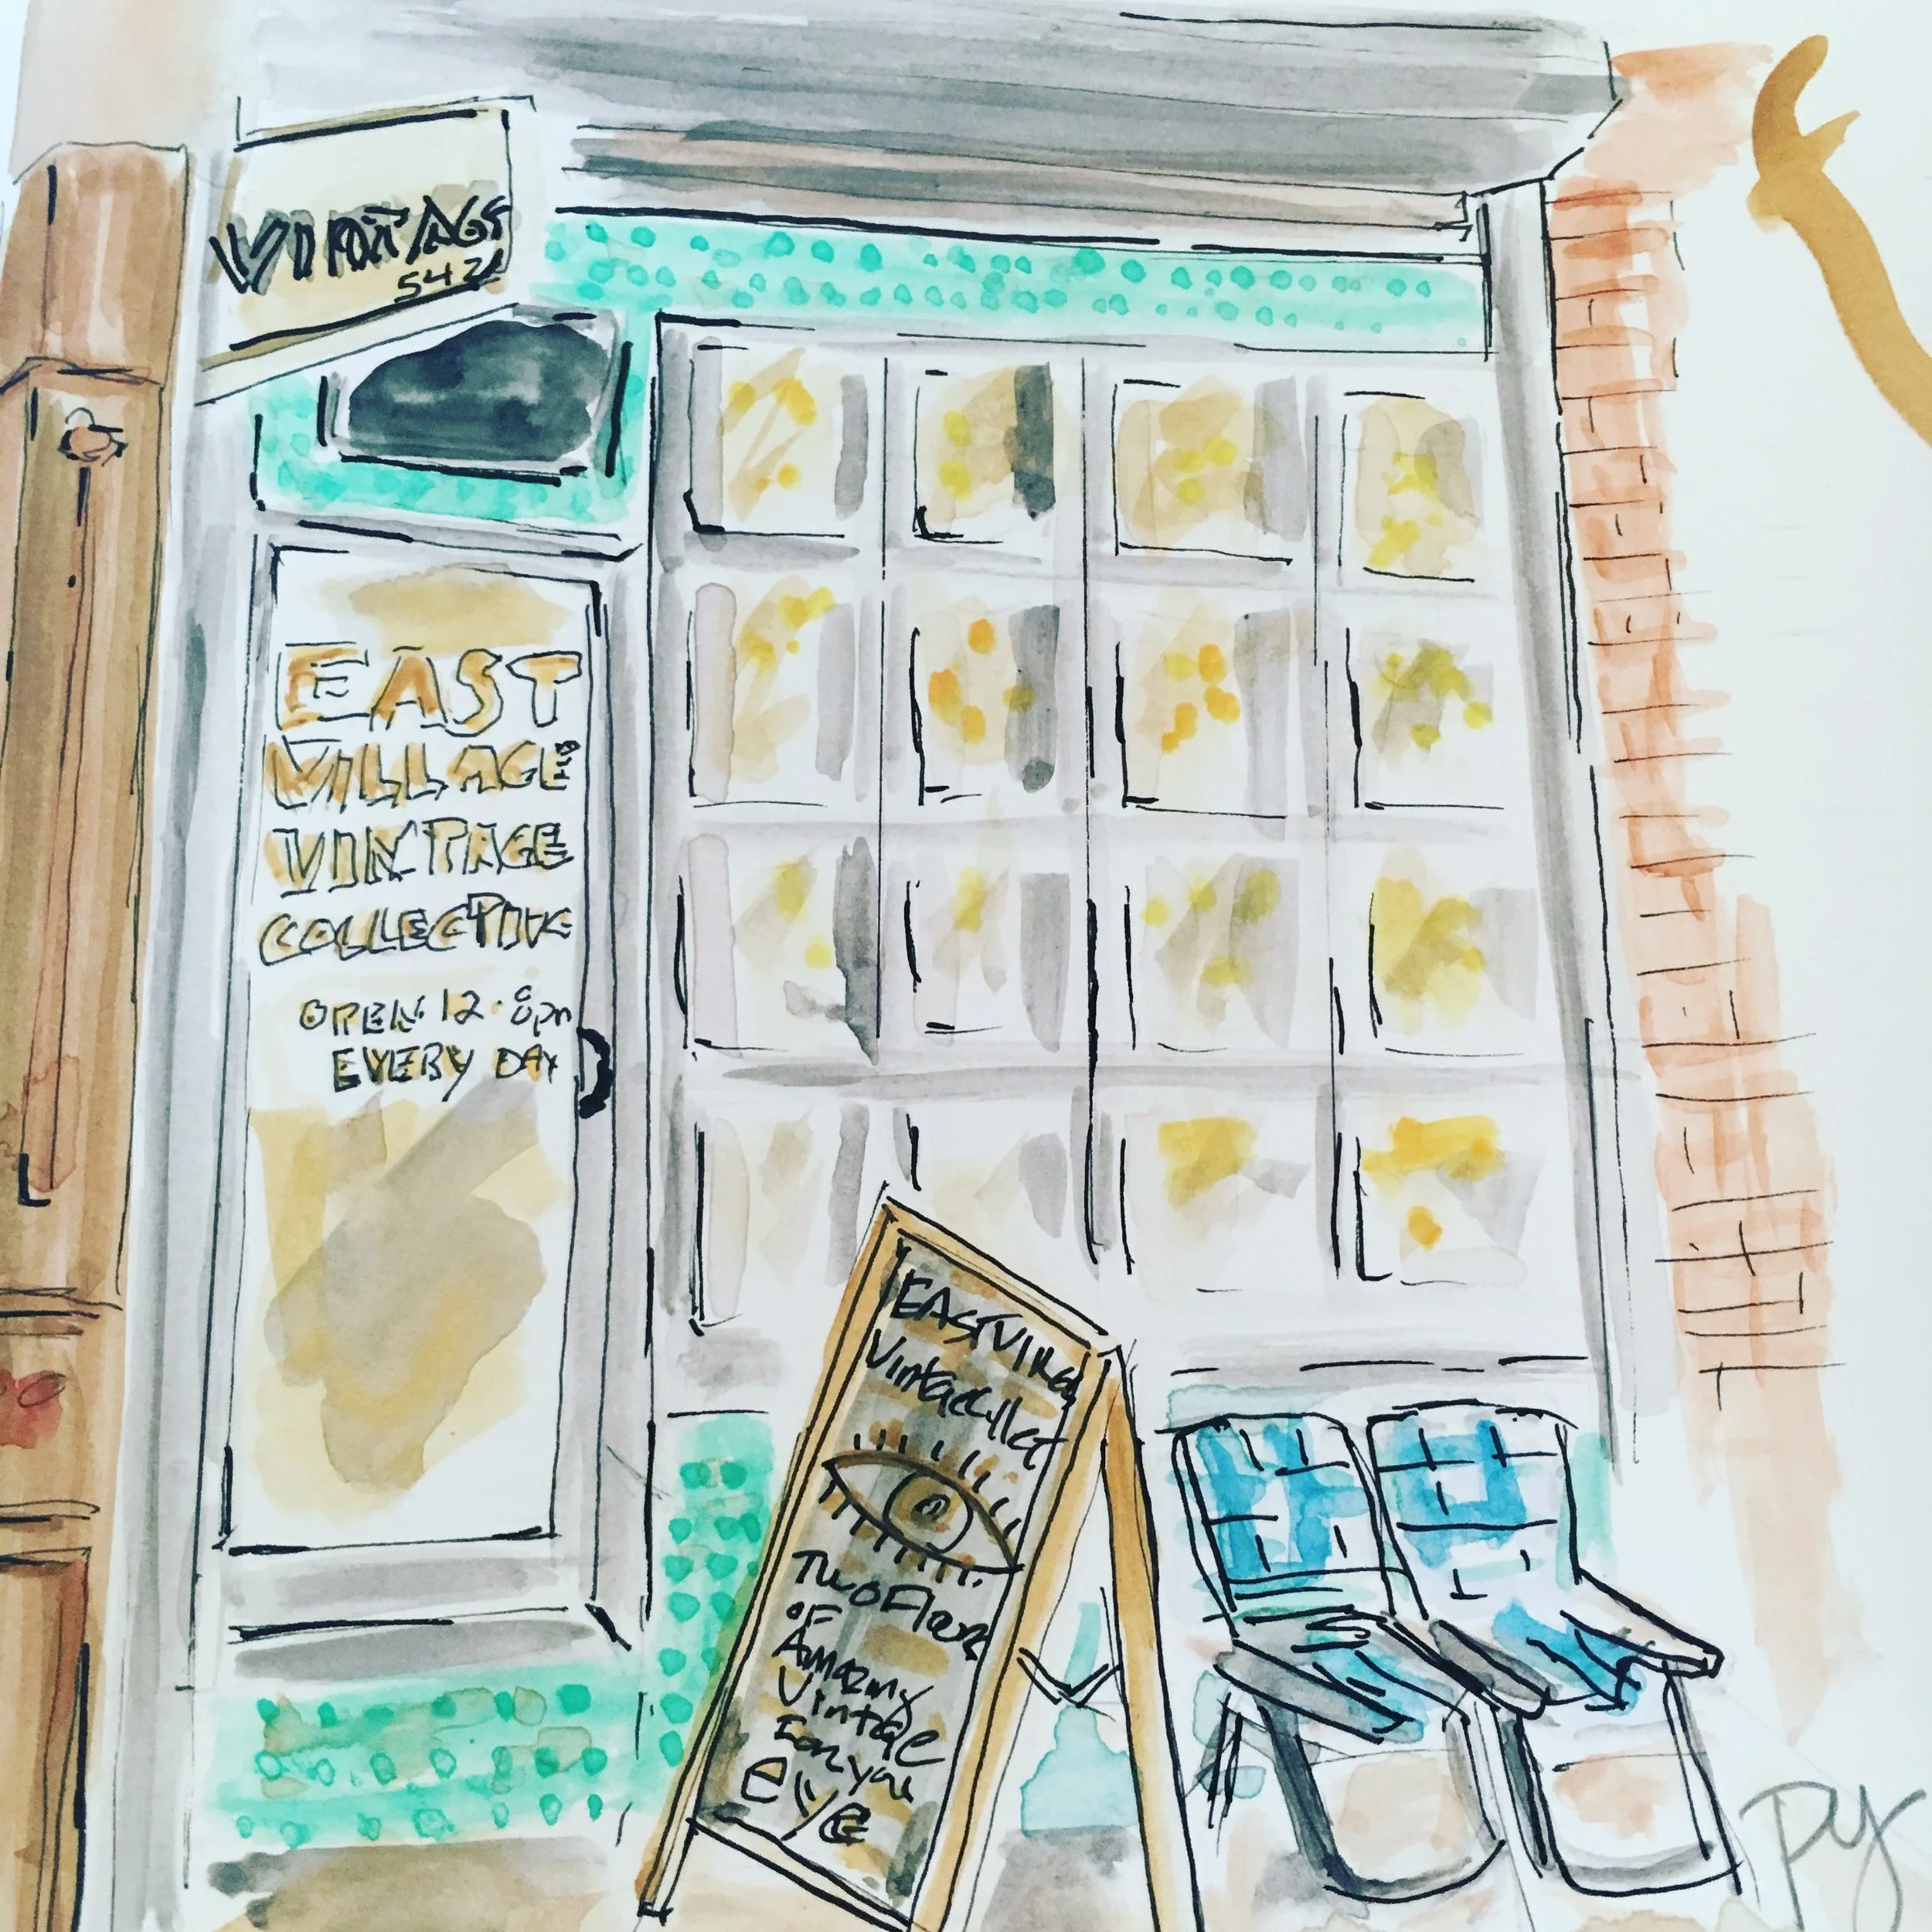 VINTAGE
542
EAST
VILLAGE
VINTAGE
COLLECTIVE
OPEN 12-8pm
EVERY DAY
EAST Villag
Vintage Collet
Two Floors
OF
Amazing
Vintage
For you
eye
py